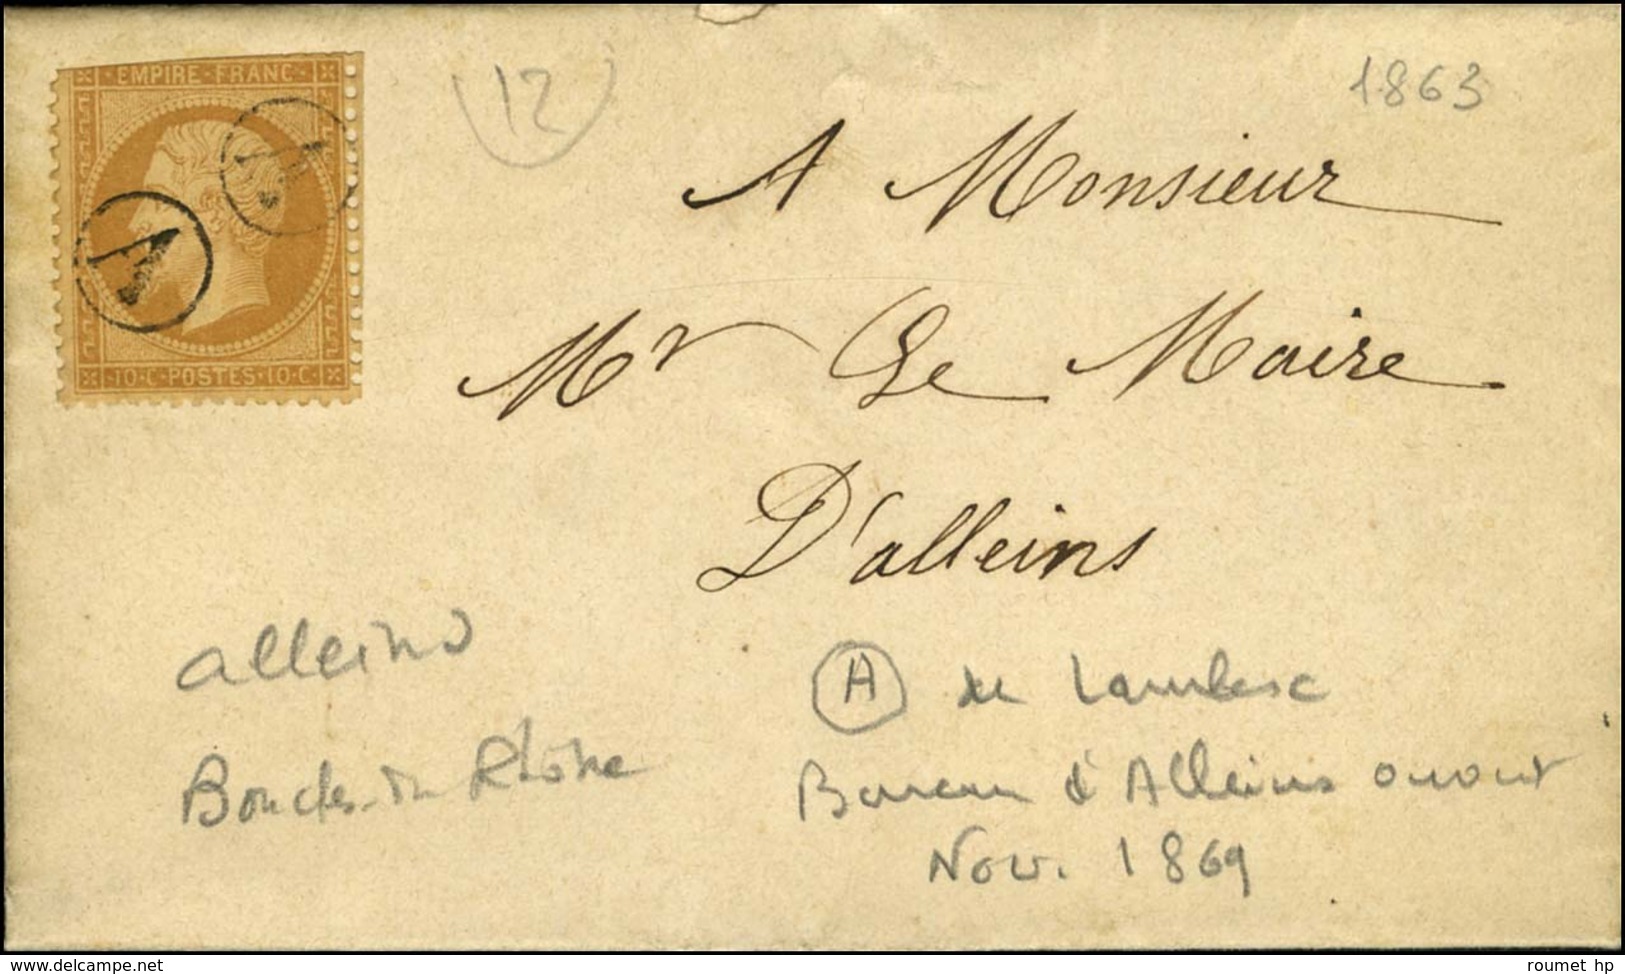 EMPIRE·FRANC
10·C·POSTES·10·C
A
A
12
1863
A Monsieur
Mr Le Maire
D'alleins
alleins
Bouches-du Rhône
A de Lambesc
Bureau d'Alleins ouvert
Nov. 1869
www.delcampe.net
roumet hp